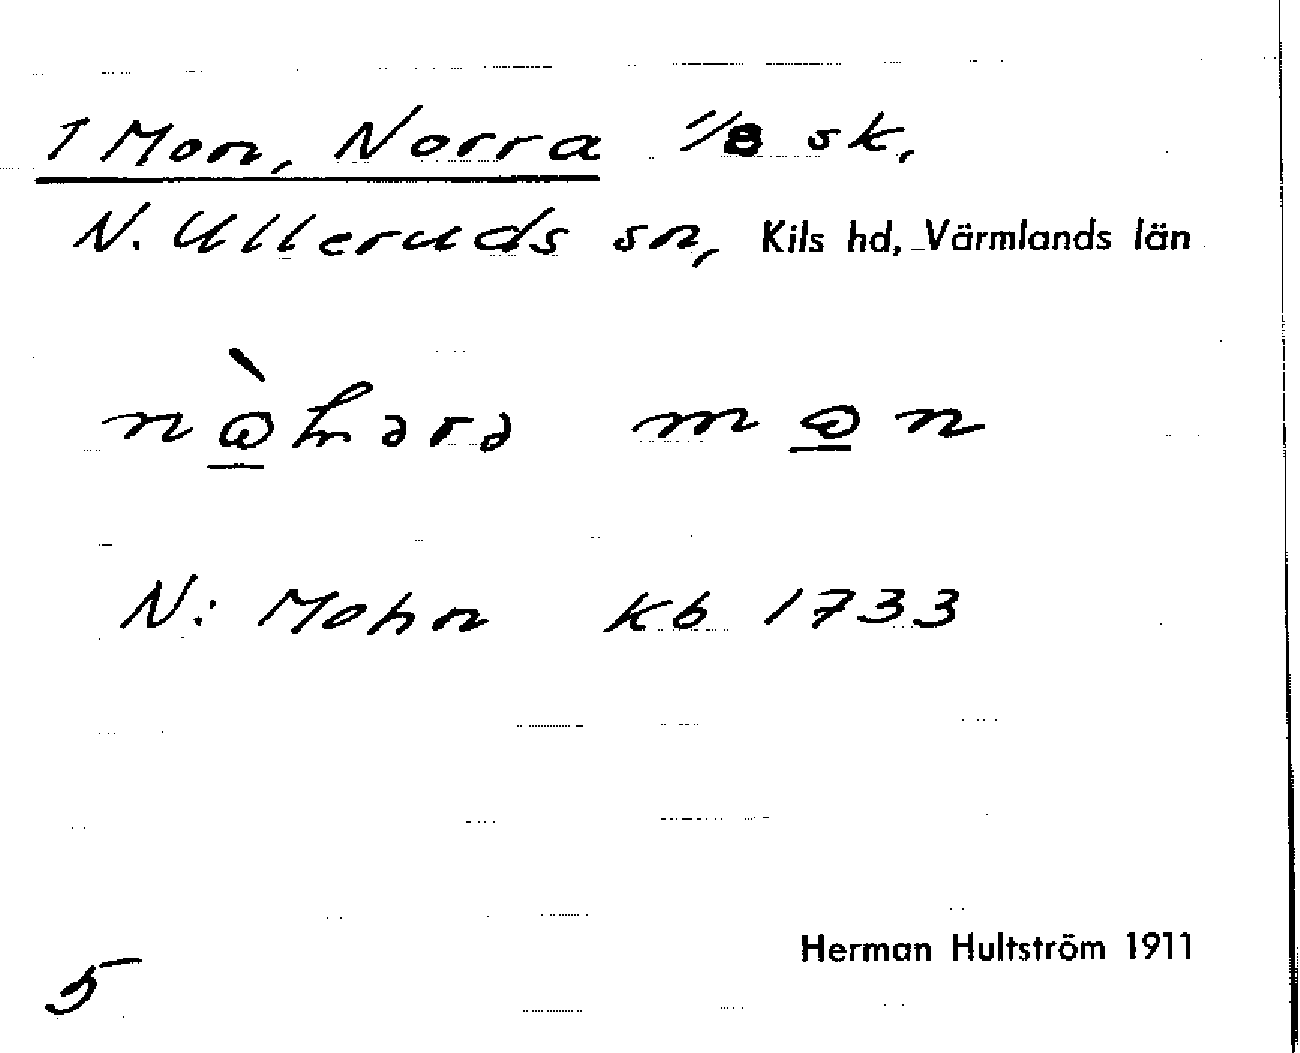 1 Mon, Norra 1/8 sk,
N. Ulleruds sn, Kils hd, Värmlands län
N: Mohn Kb 1733
Herman Hultström 1911
5